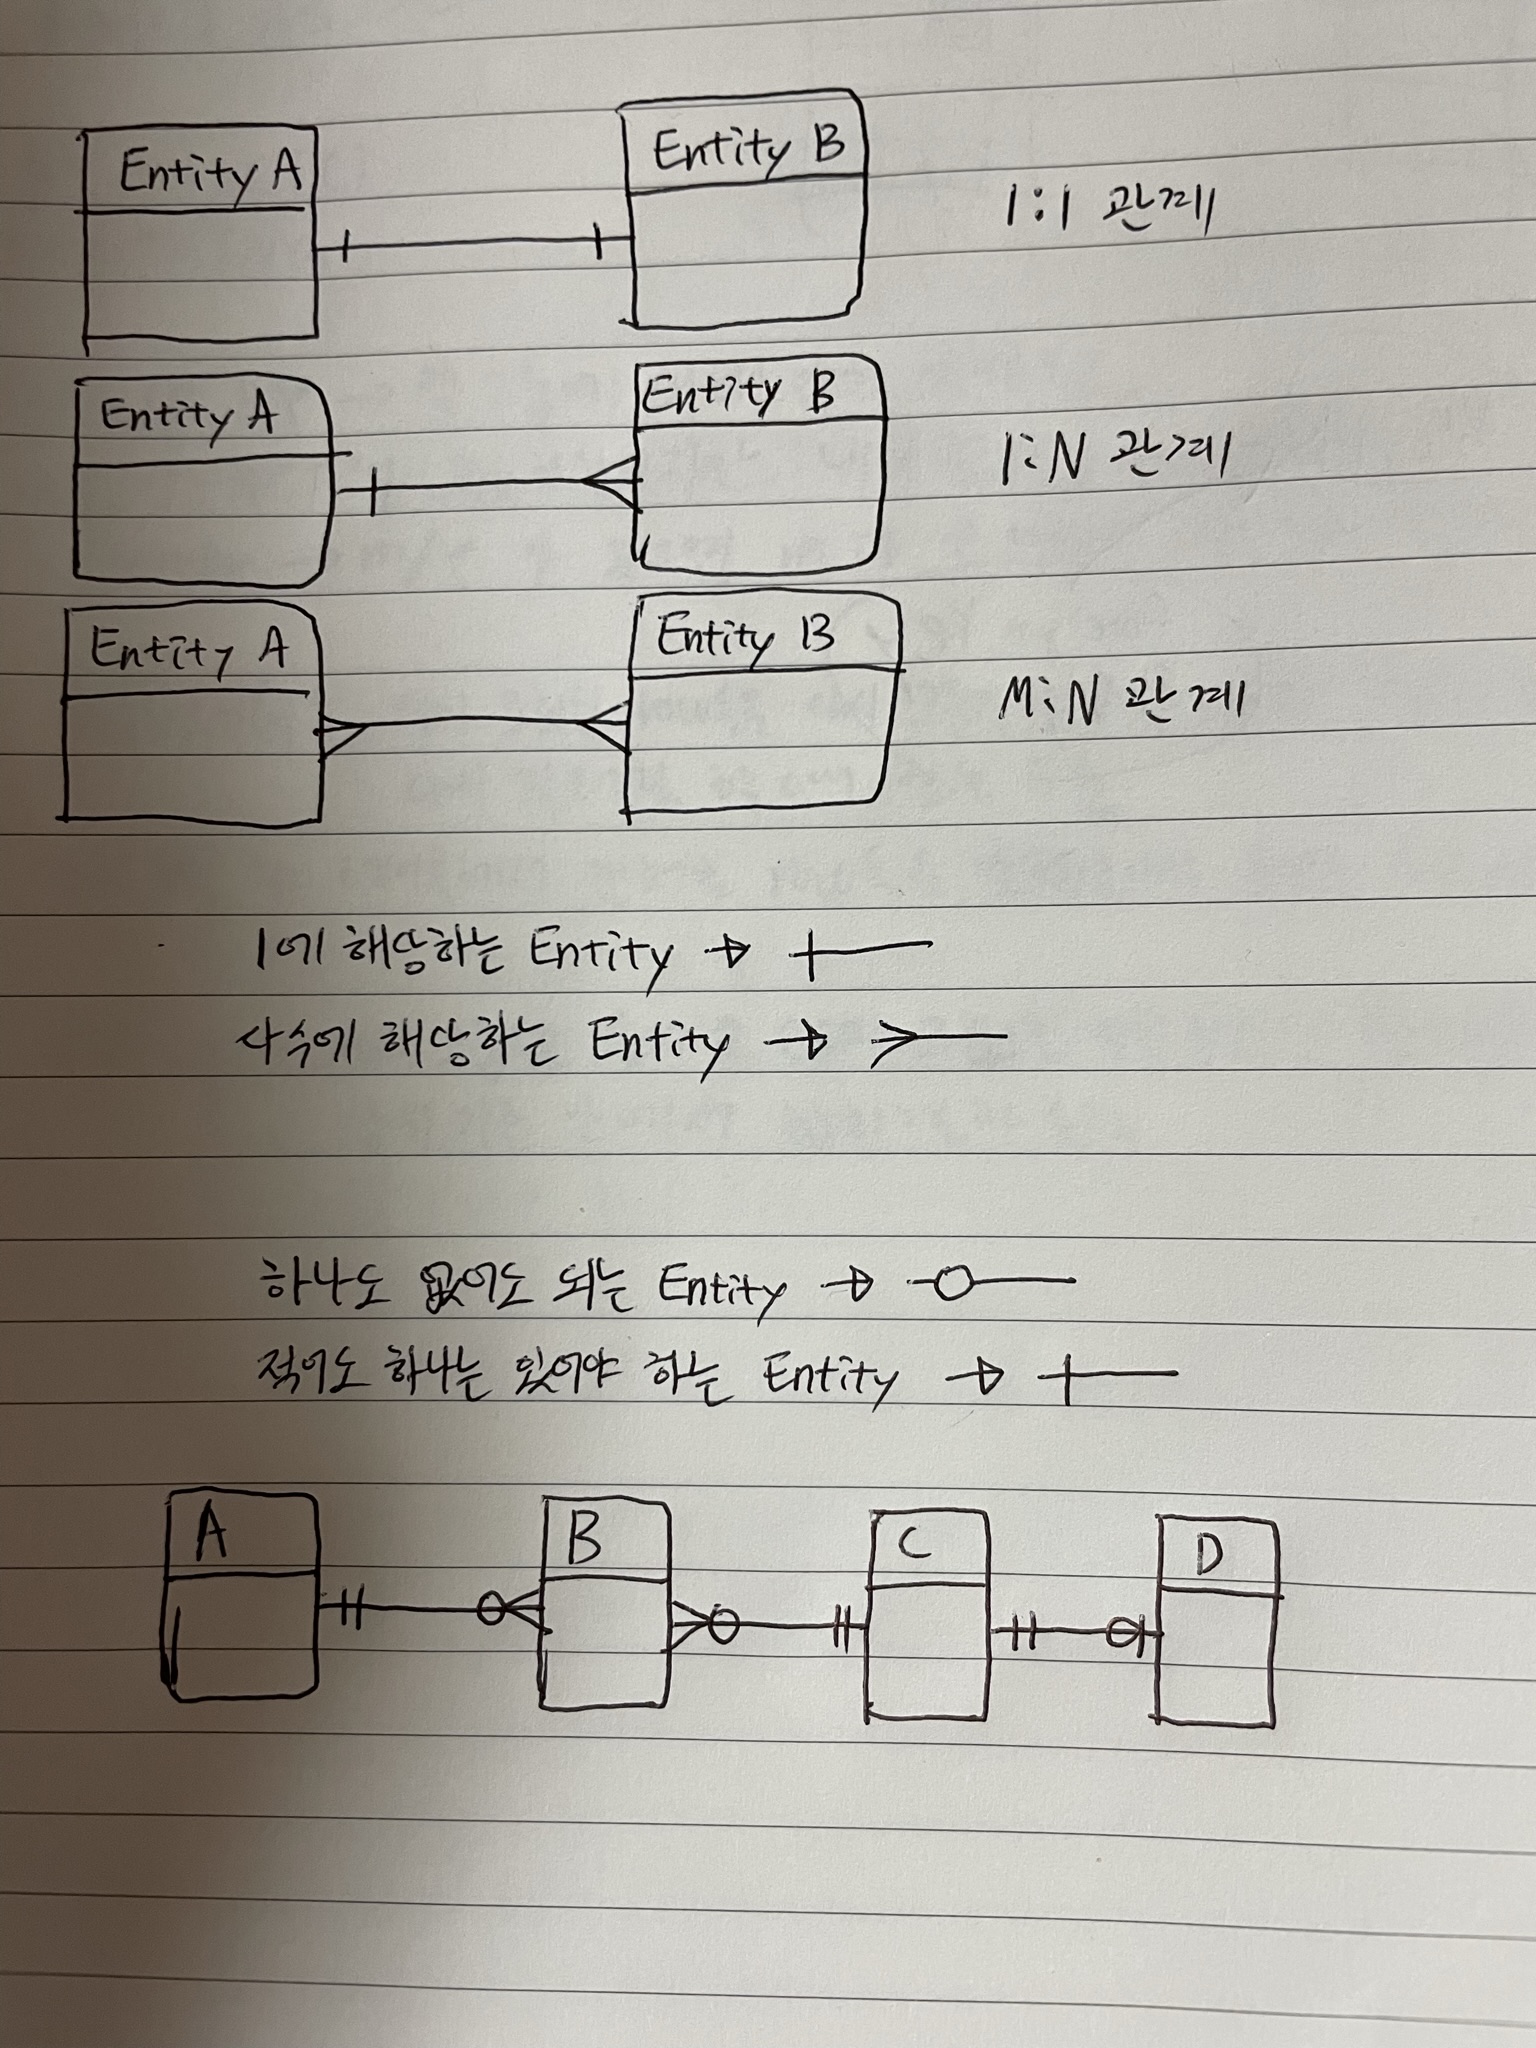 Entity A Entity B 1:1 관계
Entity A Entity B 1:N 관계
Entity A Entity B M:N 관계
1에 해당하는 Entity →
사수에 해당하는 Entity →
하나도 없어도 되는 Entity →
적어도 하나는 있어야 하는 Entity →
A B C D